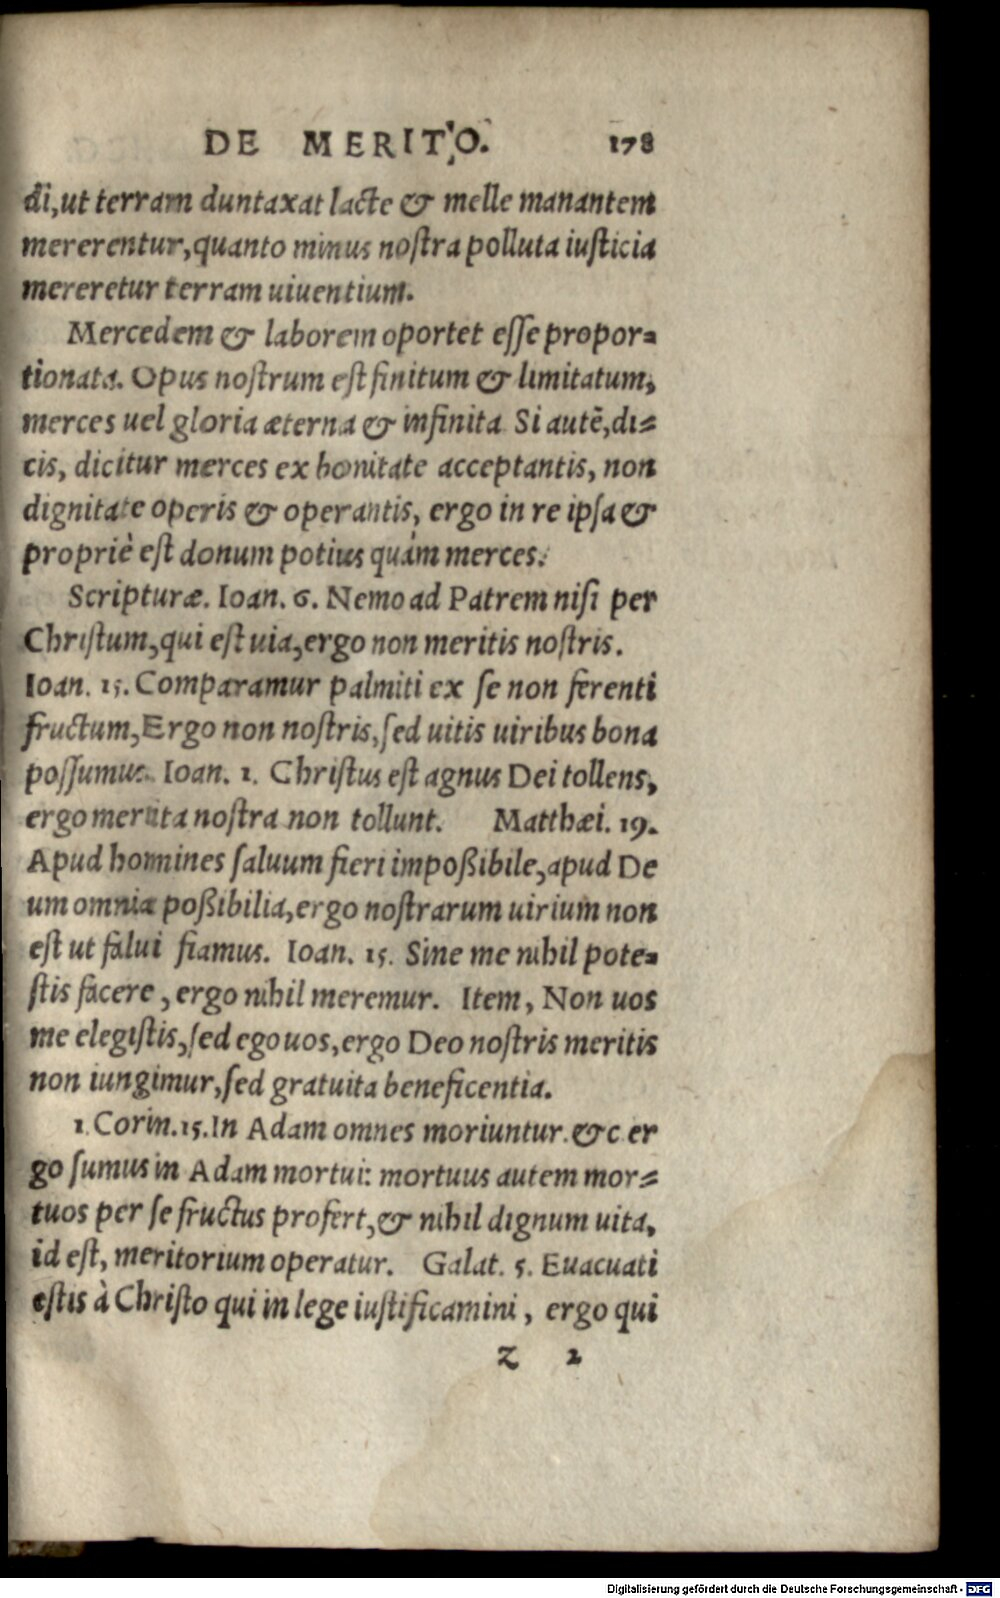 DE MERITO. 178
di, ut terram duntaxat lacte & melle manantem
mererentur, quanto minus nostra polluta iusticia
mereretur terram uiuentium.
Mercedem & laborem oportet esse propor-
tionata. Opus nostrum est finitum & limitatum,
merces uel gloria æterna & infinita Si autē, di-
cis, dicitur merces ex bonitate acceptantis, non
dignitate operis & operantis, ergo in re ipsa &
propriè est donum potius quàm merces.
Scripturæ. Ioan. 6. Nemo ad Patrem nisi per
Christum, qui est uia, ergo non meritis nostris.
Ioan. 15. Comparamur palmiti ex se non ferenti
fructum, Ergo non nostris, sed uitis uiribus bona
possumus. Ioan. 1. Christus est agnus Dei tollens,
ergo merita nostra non tollunt. Matthæi. 19.
Apud homines saluum fieri impoßibile, apud De
um omnia poßibilia, ergo nostrarum uirium non
est ut salui fiamus. Ioan. 15. Sine me nihil pote-
stis facere, ergo nihil meremur. Item, Non uos
me elegistis, sed ego uos, ergo Deo nostris meritis
non iungimur, sed gratuita beneficentia.
1. Corin. 15. In Adam omnes moriuntur. &c er
go sumus in Adam mortui: mortuus autem mor-
tuos per se fructus profert, & nihil dignum uita,
id est, meritorium operatur. Galat. 5. Euacuati
estis à Christo qui in lege iustificamini, ergo qui
Z 2
Digitalisierung gefördert durch die Deutsche Forschungsgemeinschaft - DFG